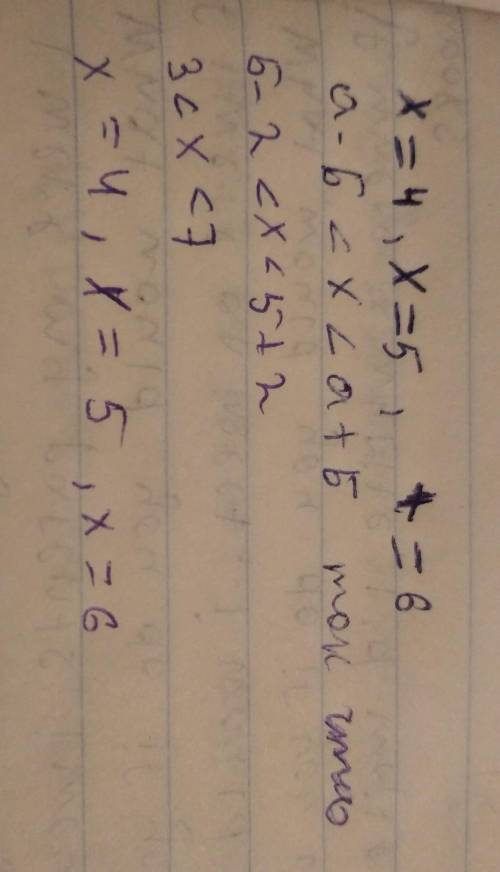 x = 4, x = 5, x = 6
a - б < x < a + б так что
5 - 2 < x < 5 + 2
3 < x < 7
x = 4, x = 5, x = 6